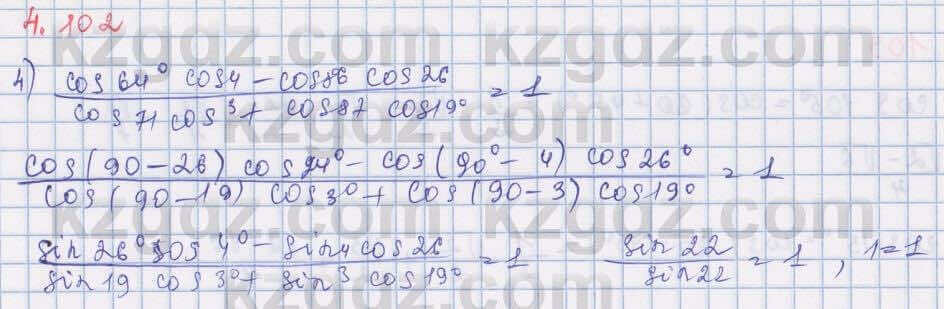 4.102
4) (cos 64° cos 4 − cos 86 cos 26) / (cos 71 cos 3° + cos 87 cos 19°) = 1
(cos(90−26) cos 4° − cos(90°−4) cos 26°) / (cos(90−19) cos 3° + cos(90−3) cos 19°) = 1
(sin 26° cos 4° − sin 4 cos 26) / (sin 19 cos 3° + sin 3 cos 19°) = 1 sin 22 / sin 22 = 1 , 1=1
kzgdz.com